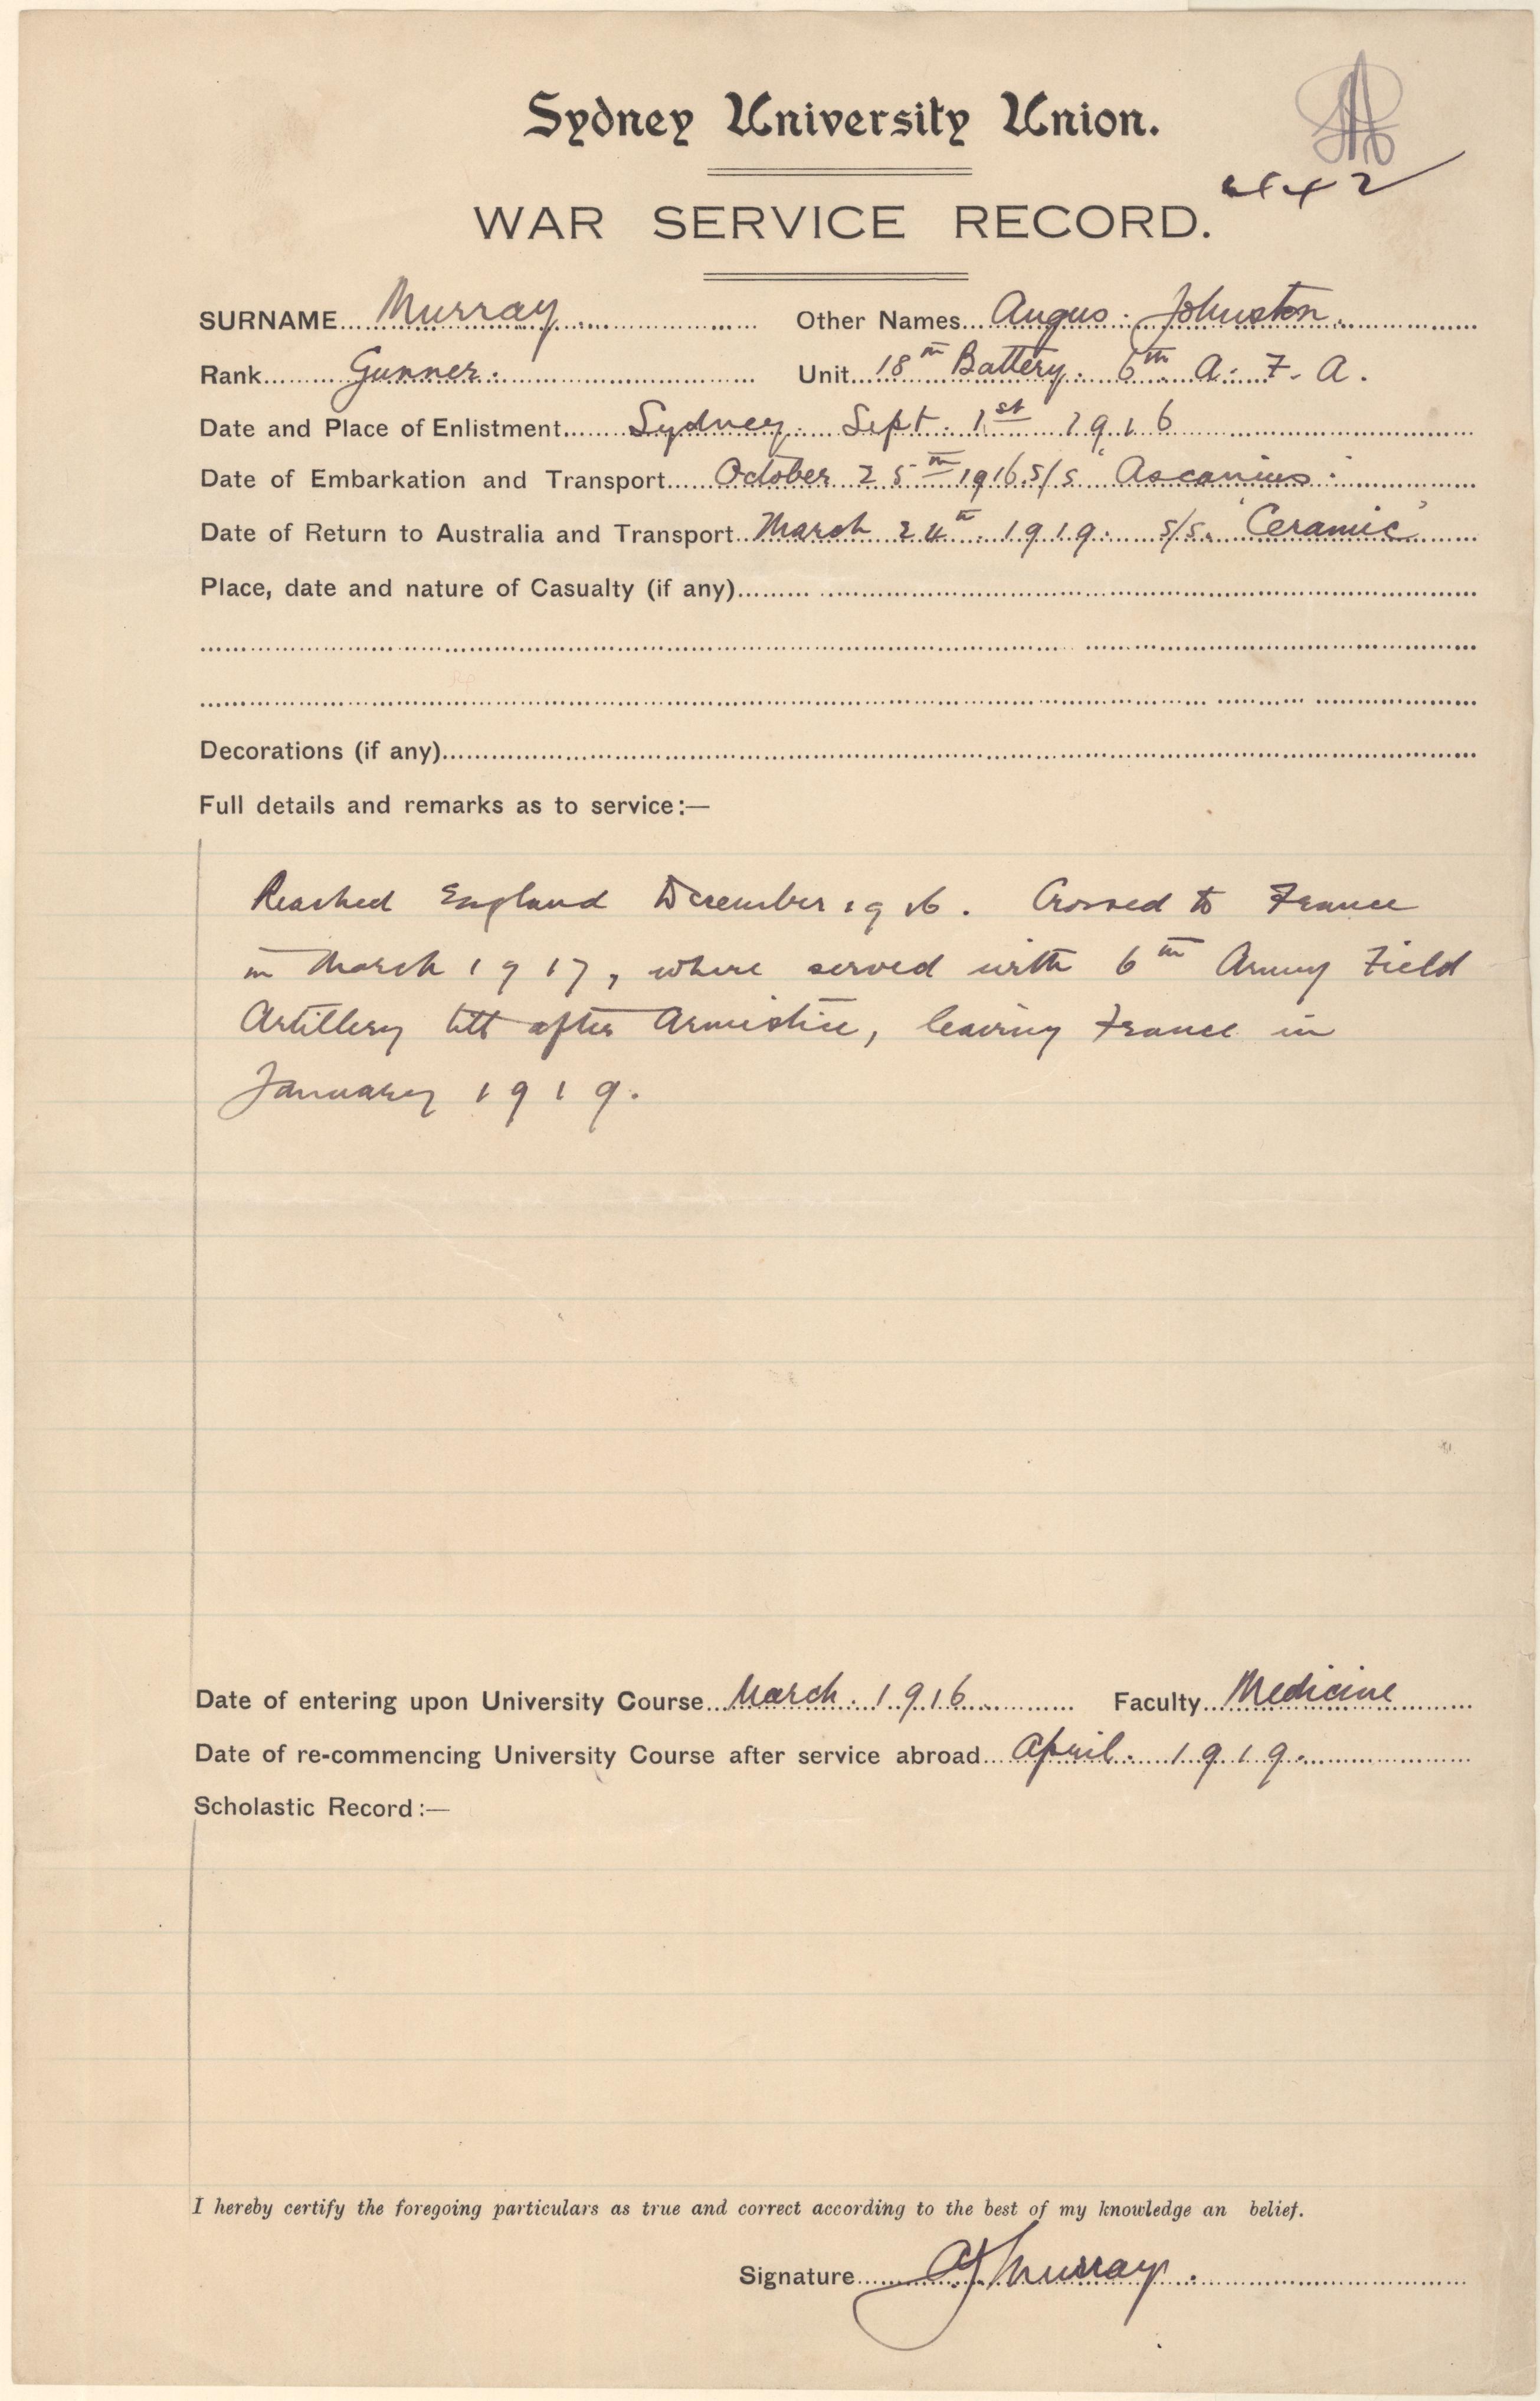 Sydney University Union.
WAR SERVICE RECORD.
SURNAME Murray Other Names Angus. Johnston.
Rank Gunner. Unit 18th Battery. 6th A. F. A.
Date and Place of Enlistment Sydney. Sept. 1st 1916
Date of Embarkation and Transport October 25th 1916. s/s "Ascanius".
Date of Return to Australia and Transport March 24th. 1919. s/s. 'Ceramic'
Place, date and nature of Casualty (if any)
Decorations (if any)
Full details and remarks as to service:—
Reached England December 1916. Crossed to France
in March 1917, where served with 6th Army Field
Artillery till after Armistice, leaving France in
January 1919.
Date of entering upon University Course March. 1916. Faculty Medicine
Date of re-commencing University Course after service abroad April. 1919.
Scholastic Record:—
I hereby certify the foregoing particulars as true and correct according to the best of my knowledge an belief.
Signature AJMurray.